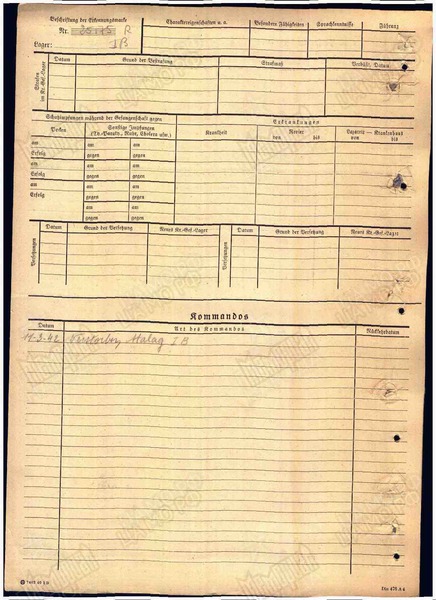 Beschriftung der Erkennungsmarke
Charaktereigenschaften u. a.
Besondere Fähigkeiten
Sprachkenntnisse
Führung
Nr. R
Lager: I B
Strafen im Kr.-Gef.-Lager
Datum
Grund der Bestrafung
Strafmaß
Verbüßt, Datum
Schutzimpfungen während der Gefangenschaft gegen
Erkrankungen
Pocken
Sonstige Impfungen
(Ty.-Paraty., Ruhr, Cholera usw.)
Krankheit
Revier
von bis
Lazarett — Krankenhaus
von bis
am am am
Erfolg gegen gegen
am am am
Erfolg gegen gegen
am am am
Erfolg gegen gegen
am am
gegen gegen
Versetzungen
Datum
Grund der Versetzung
Neues Kr.-Gef.-Lager
Versetzungen
Datum
Grund der Versetzung
Neues Kr.-Gef.-Lager
Kommandos
Datum
Art des Kommandos
Rückkehrdatum
Stalag I B
Din 476 A 4